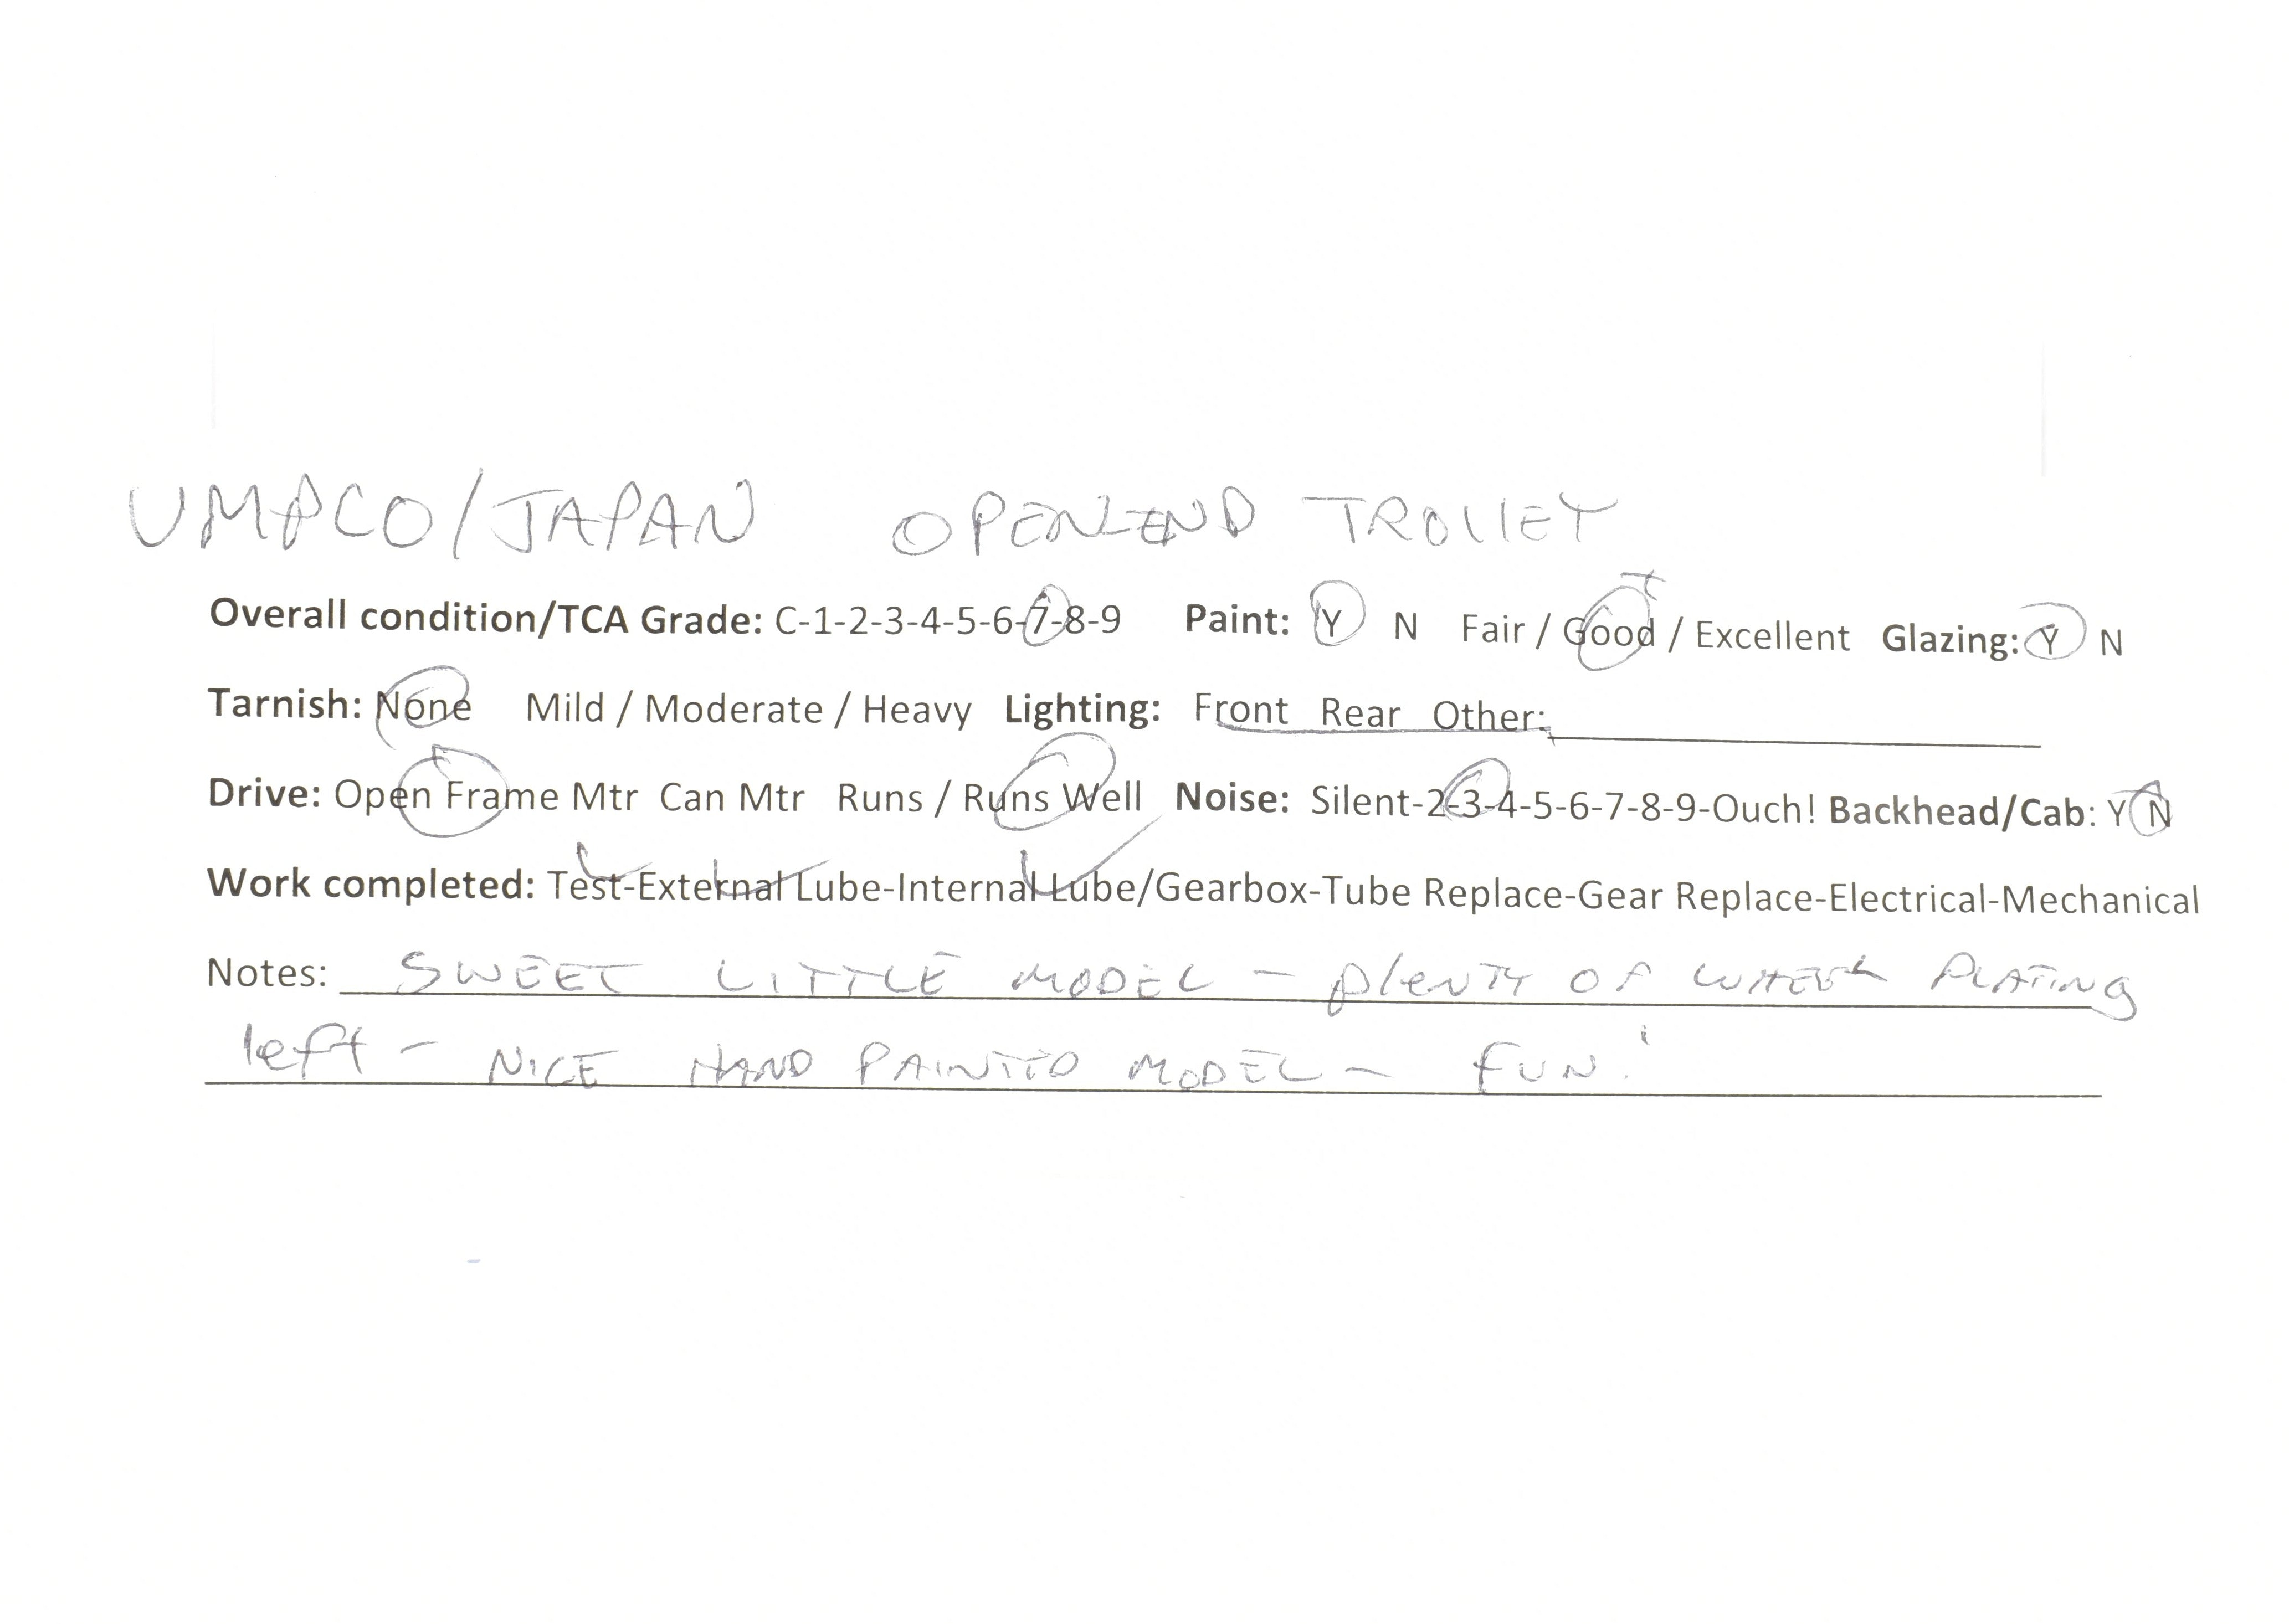 UMPCO/JAPAN OPEN END TROLLEY
Overall condition/TCA Grade: C-1-2-3-4-5-6-7-8-9 Paint: Y N Fair / Good / Excellent Glazing: Y N
Tarnish: None Mild / Moderate / Heavy Lighting: Front Rear Other:
Drive: Open Frame Mtr Can Mtr Runs / Runs Well Noise: Silent-2-3-4-5-6-7-8-9-Ouch! Backhead/Cab: Y N
Work completed: Test-External Lube-Internal Lube/Gearbox-Tube Replace-Gear Replace-Electrical-Mechanical
Notes: SWEET LITTLE MODEL - PLENTY OF WHEEL PLATING
left - NICE HAND PAINTED MODEL - FUN!